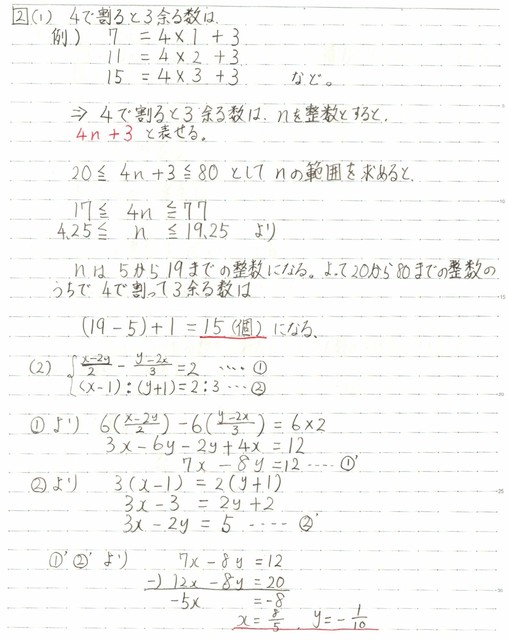 2 (1) 4で割ると3余る数は、
例) 7 = 4×1 + 3
11 = 4×2 + 3
15 = 4×3 + 3 など。
⇒ 4で割ると3余る数は、nを整数とすると、
4n+3 と表せる。
20≦ 4n+3 ≦80 として nの範囲を求めると、
17≦ 4n ≦77
4.25≦ n ≦19.25 より
nは5から19までの整数になる。よって20から80までの整数の
うちで 4で割って3余る数は
(19-5)+1 = 15(個) になる。
(2) { (x-2y)/2 - (y-2x)/3 = 2 ‥‥①
(x-1):(y+1)=2:3 ‥‥②
①より 6((x-2y)/2) - 6((y-2x)/3) = 6×2
3x-6y-2y+4x =12
7x-8y =12 ‥‥①'
②より 3(x-1) = 2(y+1)
3x-3 = 2y+2
3x-2y = 5 ‥‥②'
①'②'より 7x-8y =12
-) 12x-8y =20
-5x =-8
x = 8/5, y = -1/10